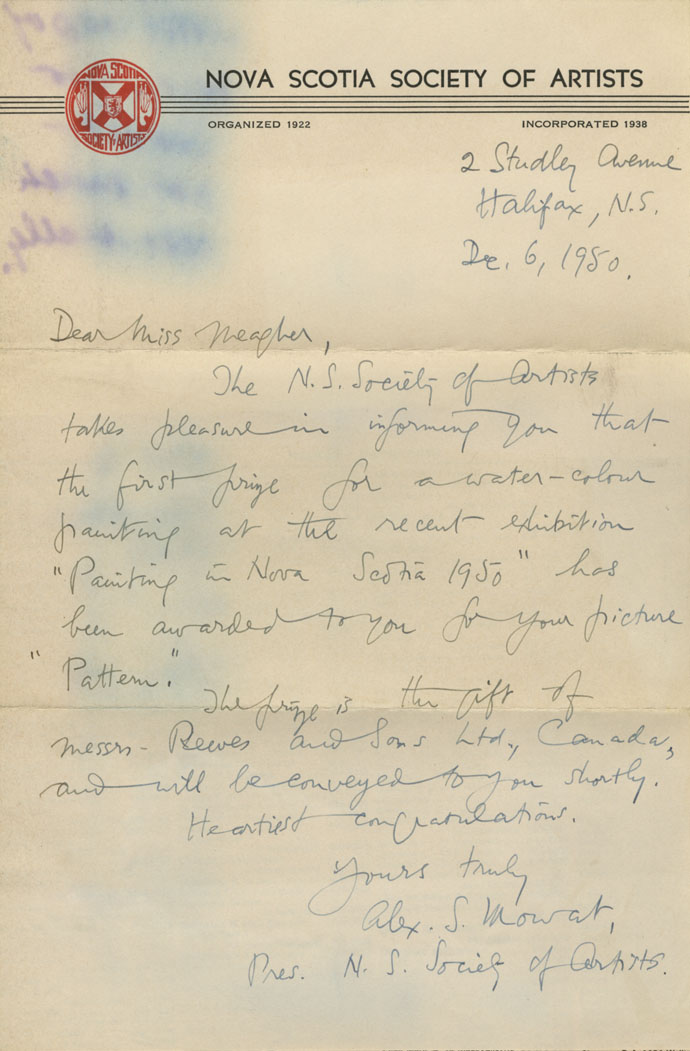 NOVA SCOTIA SOCIETY OF ARTISTS
NOVA SCOTIA
SOCIETY OF ARTISTS
ORGANIZED 1922
INCORPORATED 1938
2 Studley Avenue
Halifax, N.S.
Dec. 6, 1950.
Dear Miss Meagher,
The N.S. Society of Artists
takes pleasure in informing you that
the first prize for a water-colour
painting at the recent exhibition
"Painting in Nova Scotia 1950" has
been awarded to you for your picture
"Pattern."
The prize is the gift of
Messrs - Reeves and Sons Ltd., Canada,
and will be conveyed to you shortly.
Heartiest congratulations.
Yours truly
Alex. S. Mowat,
Pres. N. S. Society of Artists.